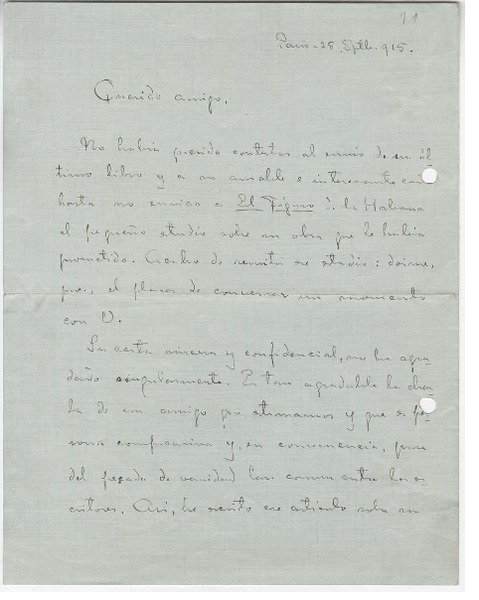 11
Paris - 25 Sptbre. 915.
Querido amigo,
No había querido contestar al envío de su úl
timo libro y a su amable e interesante carta
hasta no enviar a El Fígaro de la Habana
el pequeño studio sobre su obra que le había
prometido. Acabo de remitir ese studio: doime,
pues, el placer de conversar un momento
con U.
Su carta sincera y confidencial, me ha agra-
dado singularmente. Es tan agradable la char
la de un amigo que stimamos y que es pe
sona y, en consecuencia,
del pecado de vanidad tan común entre los es-
critores. Así, he escrito ese artículo sobre su